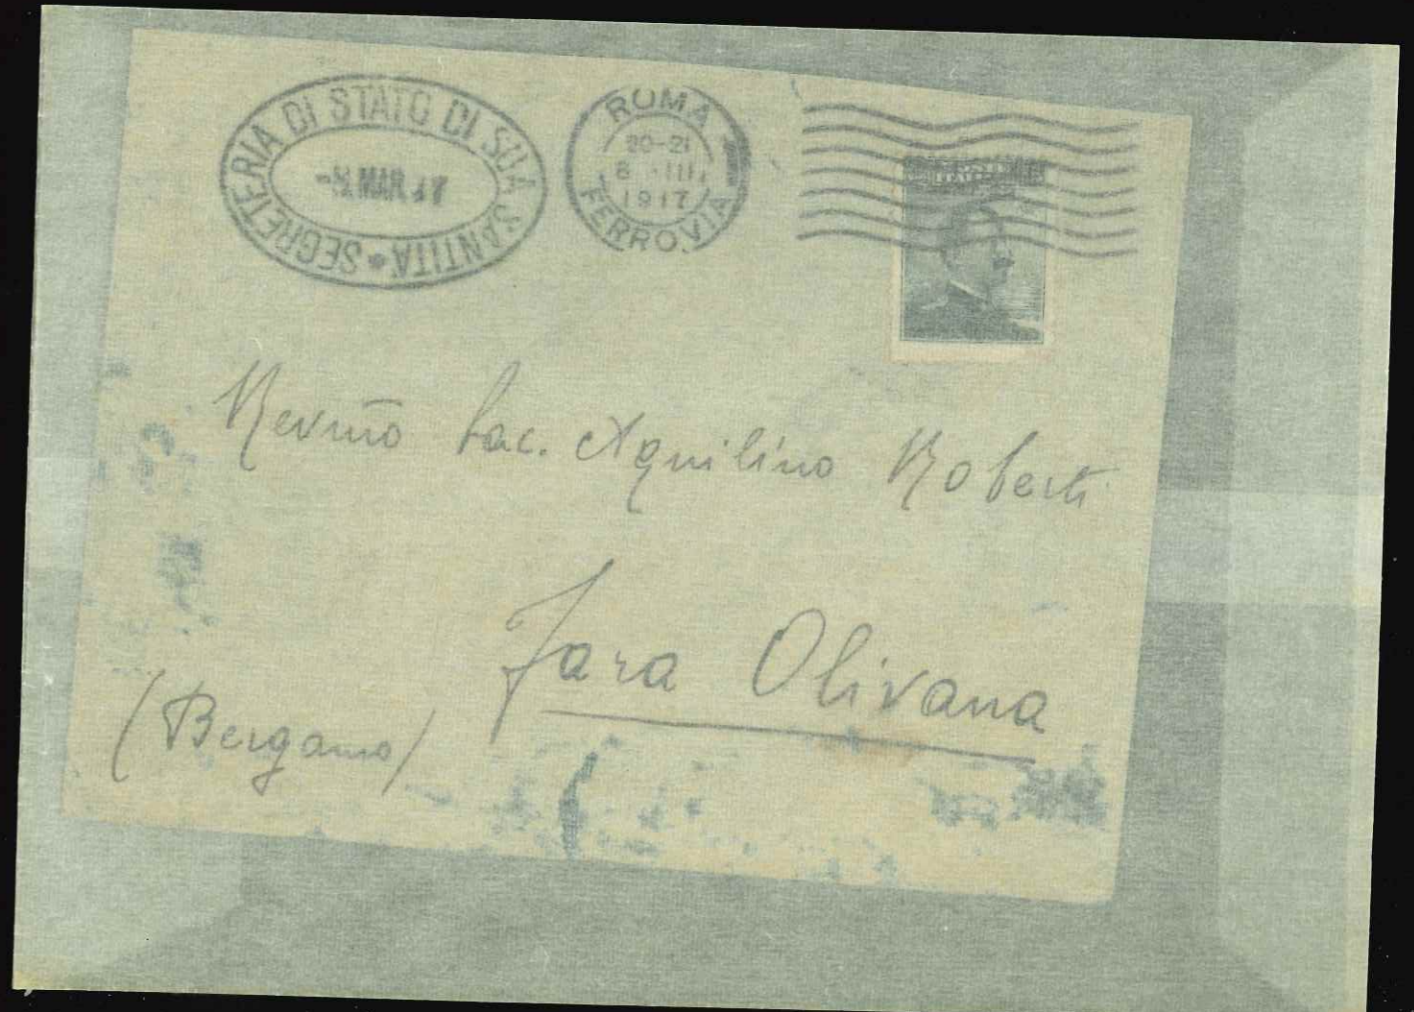 SEGRETERIA DI STATO DI SUA SANTITÀ
MAR 17
ROMA
20-21
8 · III
1917
FERROVIA
Revmo Sac. Aquilino Roberti
Fara Olivana
(Bergamo)